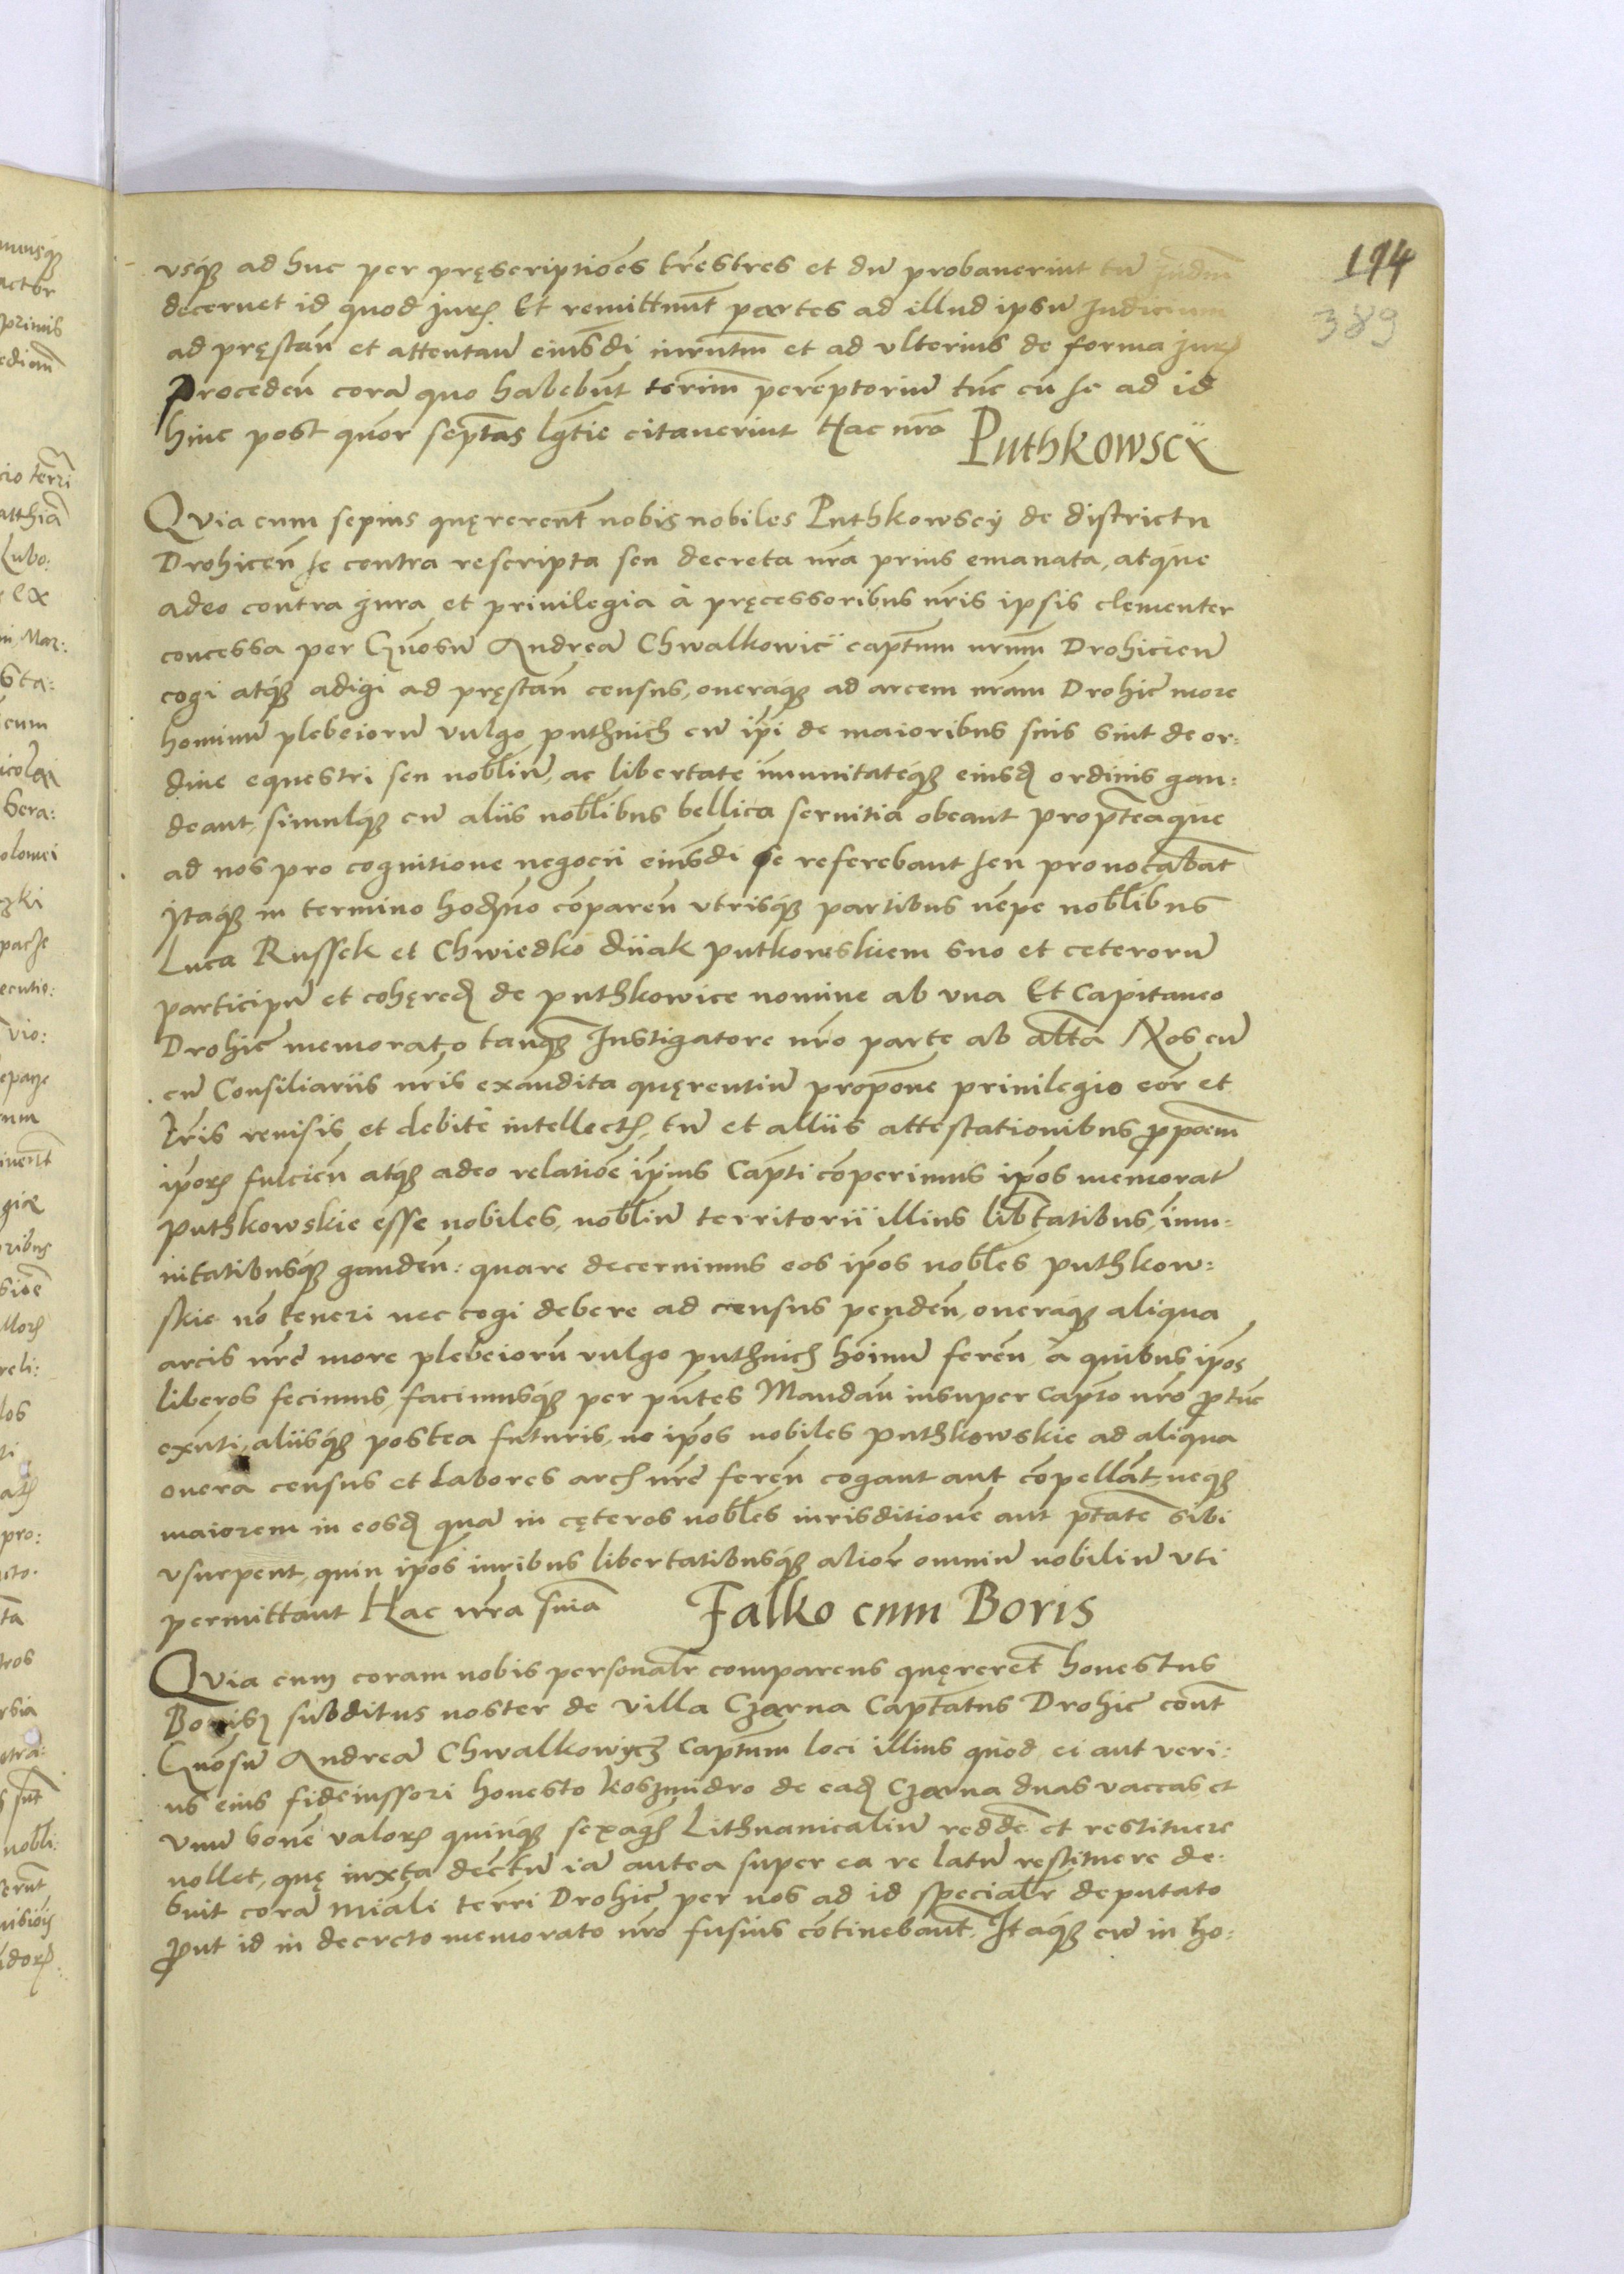 194
389
vsq3 ad huc per pręscriptiōes trēstres et dū probauerint tū Judm
decernet id quod jurꝭ Et remittunt partes ad illud ipsū Judicium
ad pręstan̄ et attentan̄ eiusdi iurntm̄ et ad vlterius de forma jurꝭ
Proceden̄ corā quo habebūt term̄ perēptoriū tūc cū se ad id
hinc post quōr septīas lgtīe citauerint Hac nrā
Puthkowscÿ
Qvia cum sepius quęrerent̄ nobis nobiles Puthkowscÿ de districtu
Drohicen̄ se contra rescripta seu decreta nrā prius emanata, atque
adeo contra jura et priuilegia à pręcessoribus nrīs ipsis clementer
concessa per Gnosū Andreā Chwalkowic̄ captm̄ nrūm Drohicien̄
cogi atq3 adigi ad pręstan̄ census, oneraq3 ad arcem nrām Drohic̄ more
hominū plebeiorū vulgo puthnich cū ipī de maioribus suis sint de or:
dine equestri seu noblīū, ac libertate imunitateq3 eiusd̄ ordinis gau:
deant, simulq3 cū aliis noblībus bellica seruitia obeant proptēaque
ad nos pro cognitione negocii eiusdi se referebant seu prouocabāt
Itaq3 in termino hodīno cōparen̄ vtrisq3 partibus nēpe noblībus
Luca Russek et Chwiedko diiak putkowskiem suo et ceterorū
participū et cohęred̄ de puthkowice nomine ab vna Et Capitaneo
Drohic̄ memorato tanq3 Instigatore nrō parte ab altā Nos cū
cū Consiliariis nrīs exaudita quęrentiū propōne priuilegio eor̄ et
lrīs reuisis et debite intellectꝭ, tū et alliis attestationibus ꝓpoēm
ipōrꝭ fulcien̄ atq3 adeo relatiōe ipīus Captī cōperimus ipōs memorat̄
puthkowskie esse nobiles, noblīū territorii illius libtātibus, imu:
nitatibusq3 gauden̄: quare decernimus eos ipōs noblēs puthkow:
skie nō teneri nec cogi debere ad census penden̄, oneraq3 aliqua
arcis nrē more plebeiorū vulgo puthnich hoīnū feren̄ à quibus ipōs
liberos fecimus, facimusq3 per pn̄tes Mandan̄ insuper Captō nrō ꝓtūc
exn̄ti, aliisq3 postea futuris, ne ipōs nobiles puthkowskie ad aliqua
onera census et labores arcꝭ nrē feren̄ cogant aut cōpellāt, neq3
maiorem in eosd̄ quā in cęteros noblēs iurisditionē aut ptātē sibi
vsurpent, quin ipōs iuribus libertatibusq3 alior̄ omniū nobiliū vti
permittant Hac nrā snīa
Falko cum Boris
Qvia cum coram nobis personalr̄ comparens quęrerēt honestus
Boris subditus noster de villa Czarna Captātus Drohic̄ cont̄
Gnosū Andreā Chwalkowycz Captm̄ loci illius quod ei aut veri:
us eius fideiussori honesto Koszmidro de ead̄ Czarna duas vaccas et
vnū bouē valorꝭ quinq3 sexagꝭ Lithuanicaliū redde et restituere
nollet, quę iuxta dectū iā antea super ea re latū restituere de:
buit corā Miāli terrī Drohic̄ per nos ad id specialr̄ deputato
ꝓut id in decreto memorato nrō fusius cōtinebant̄. Itaq3 cū in ho: